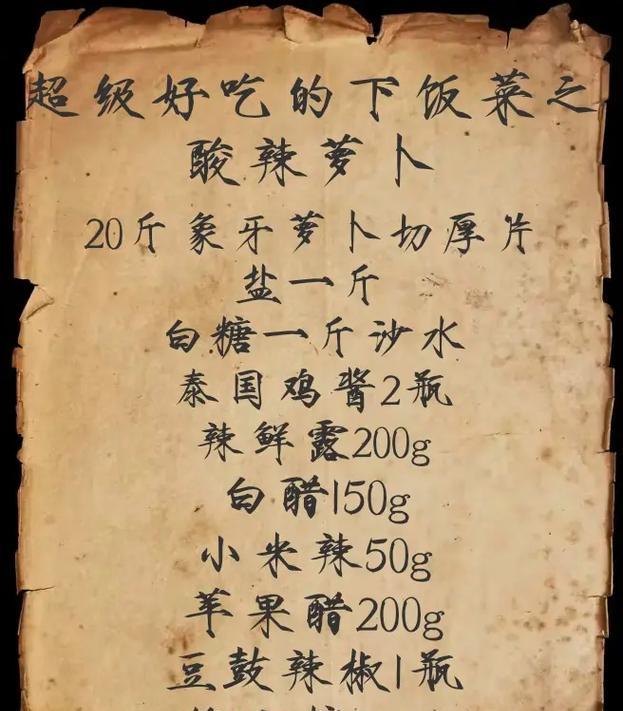 超级好吃的下饭菜之
酸辣萝卜
20斤象牙萝卜切厚片
盐一斤
白糖一斤沙水
泰国鸡酱2瓶
辣鲜露200g
白醋150g
小米辣50g
苹果醋200g
豆鼓辣椒1瓶